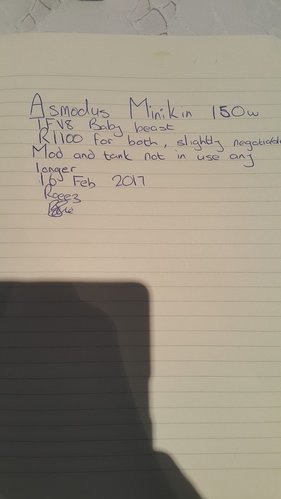 Asmodus Minikin 150w
TFV8 Baby beast
R1100 for both, slightly negotiable
Mod and tank not in use any
longer
10 Feb 2017